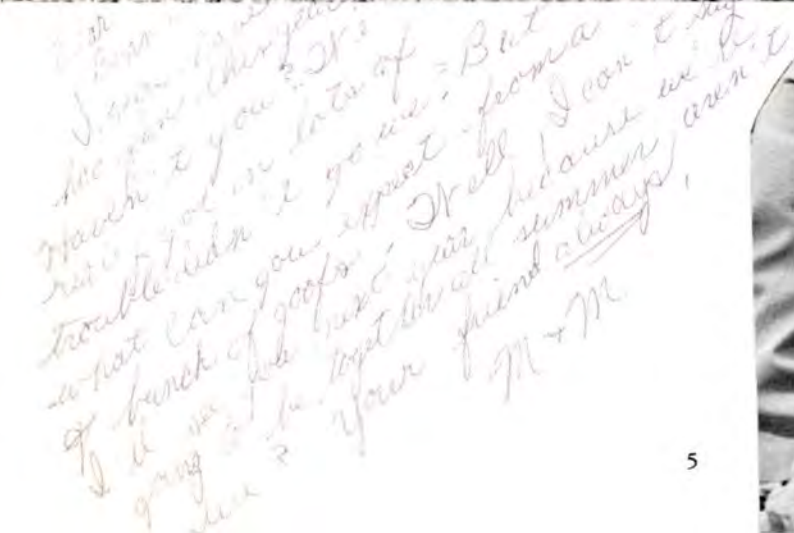 Dear
this year
Haven't you? We
got in lots of
trouble didn't we. But
what can you expect from a
bunch of goofs. Well, I can't say
I'll see you next year because we're
going to be together all summer aren't
we? Your friend always,
M + M.
5